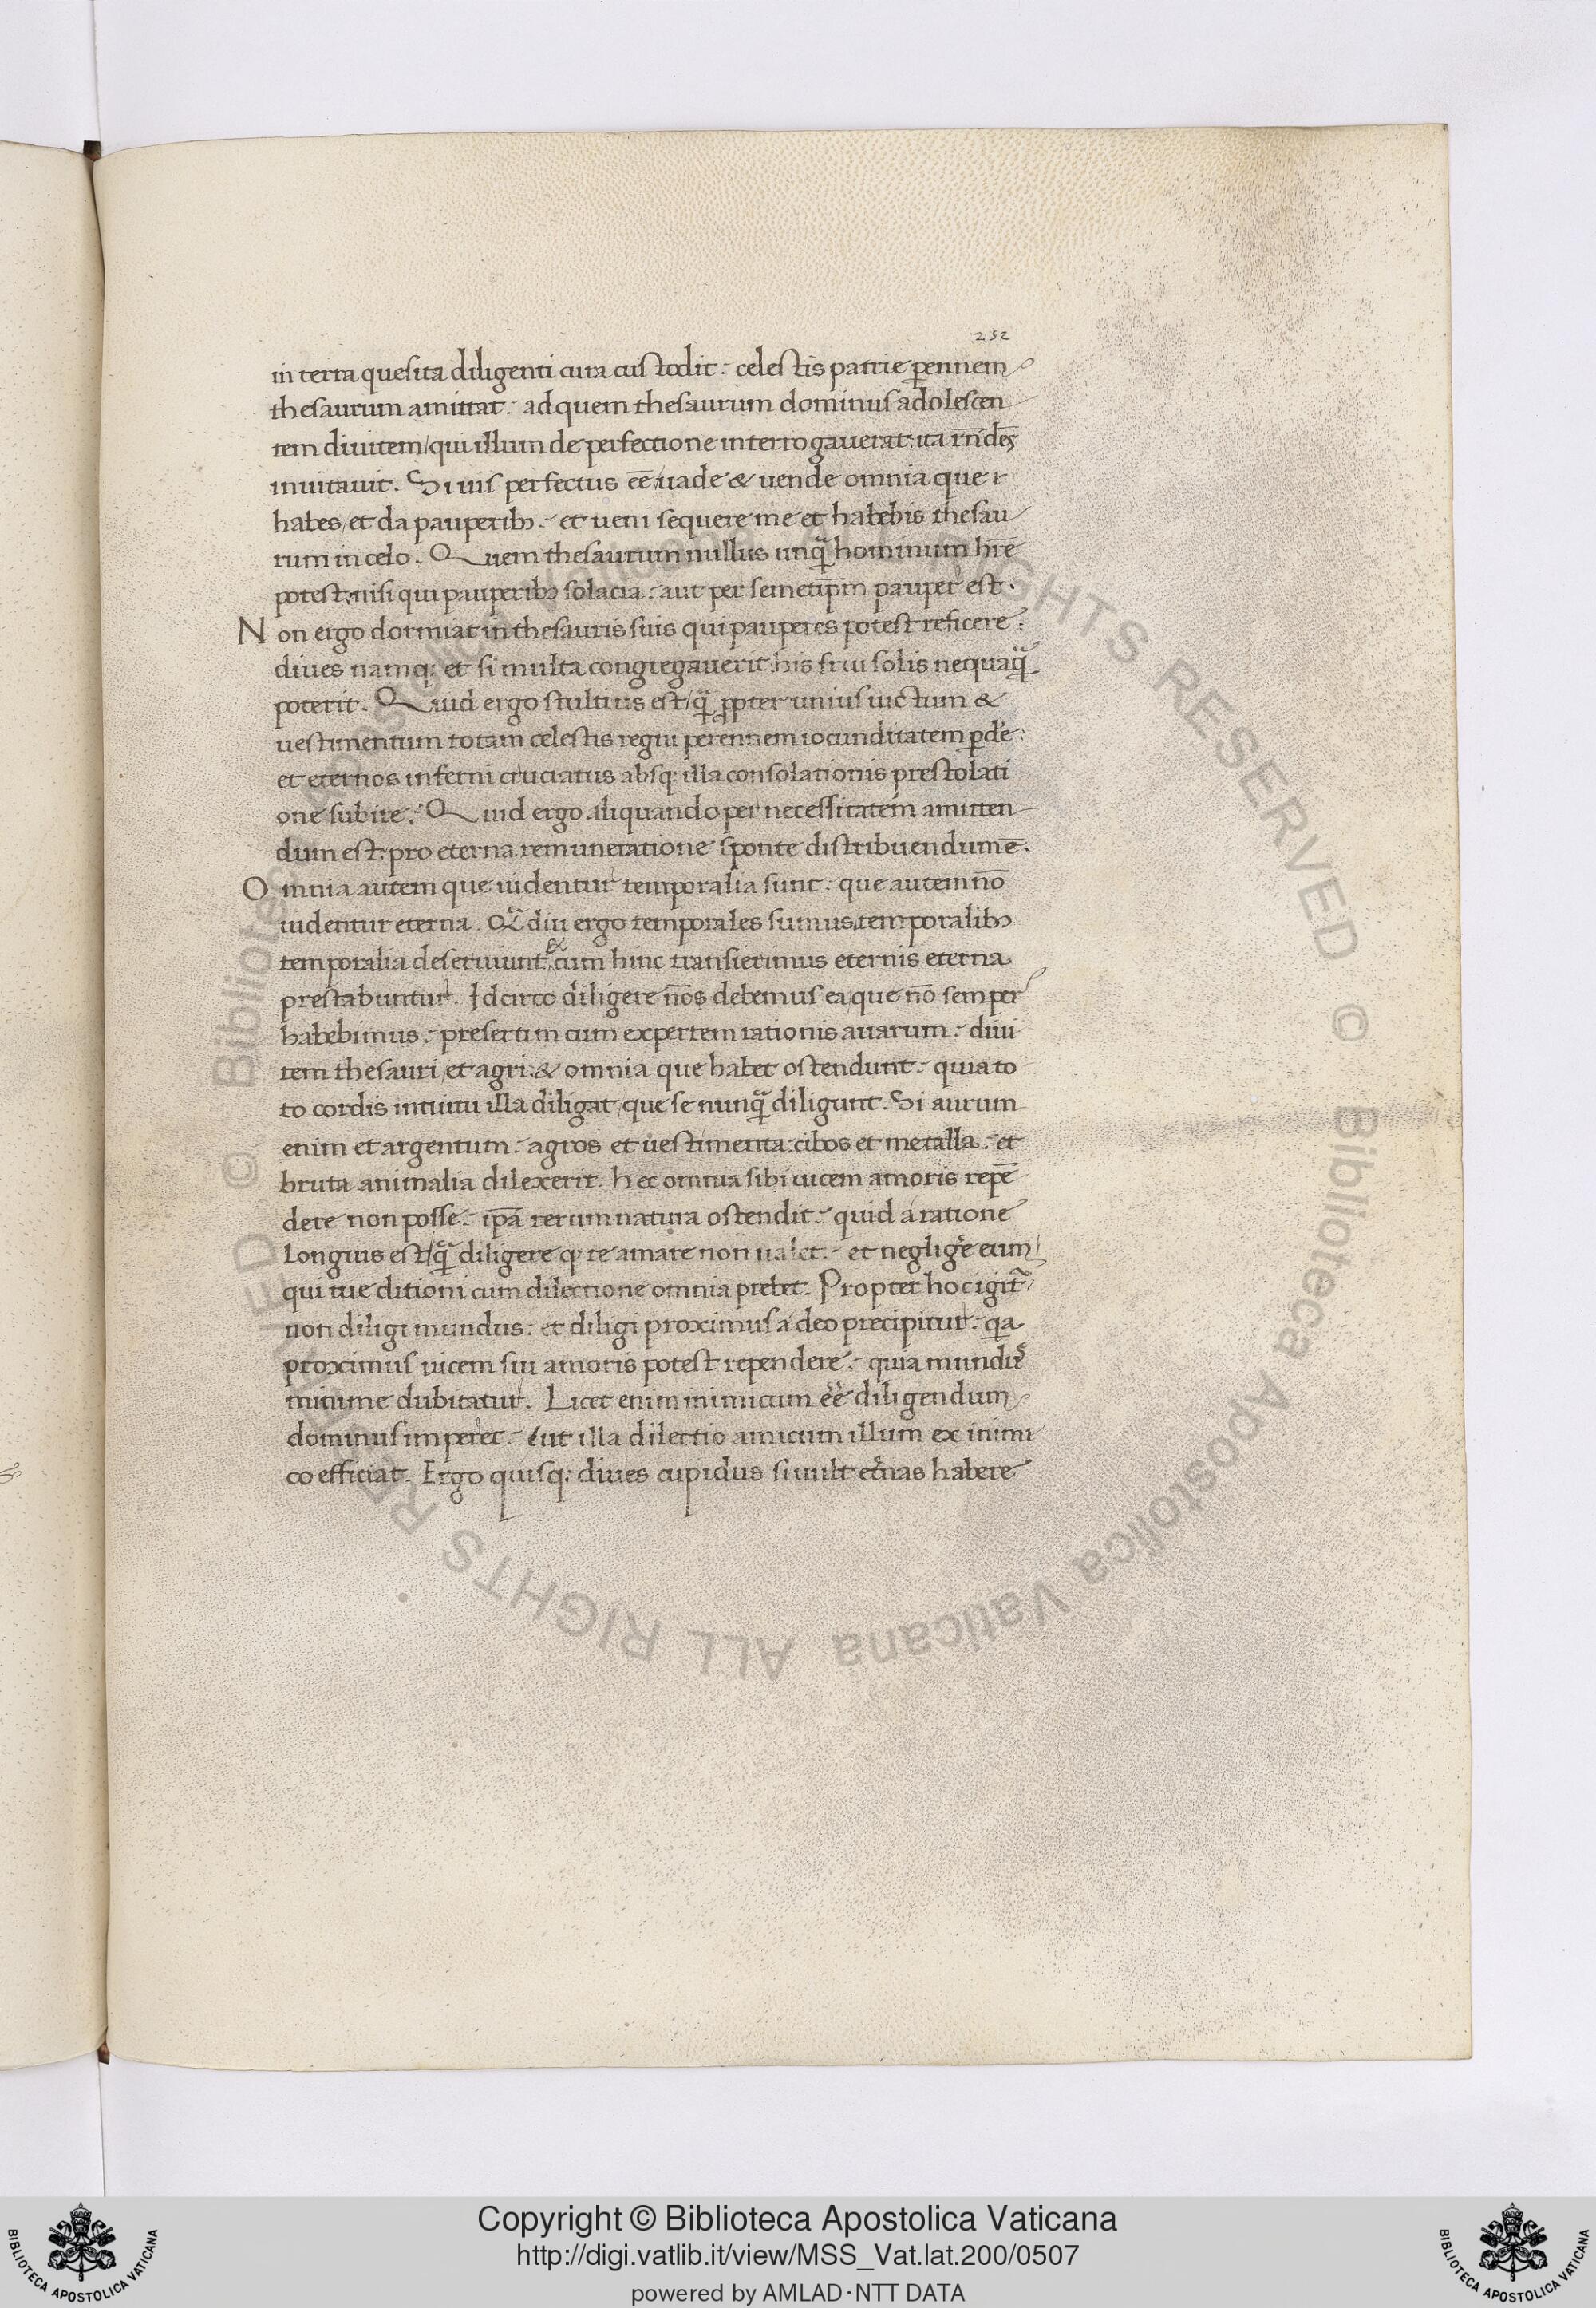 252
in terra quesita diligenti cura custodit: celestis patrie p̱ennem
thesaurum amittat: ad quem thesaurum dominus adolescen
tem divitem/qui illum de perfectione interrogaverat: ita rñdēs
invitavit. Si vis perfectus eē/vade & vende omnia que
habes/et da pauperib;: et veni sequere me et habebis thesau
rum in celo. Quem thesaurum nullus unq̄ hominum hr̄e
potest: nisi qui pauperib; solacia: aut per semetip̄m pauper est.
Non ergo dormiat in thesauris suis qui pauperes potest reficere:
dives namq: et si multa congregaverit: his frui solis nequaq̄
poterit. Quid ergo stultius est/q̄ p̱pter unius victum &
vestimentum totam celestis regni perennem iocunditatem p̱de:
et eternos inferni cruciatus absq: illa consolationis prestolati
one subire: Quid ergo aliquando per necessitatem amitten
dum est: pro eterna remuneratione sponte distribuendum ē.
Omnia autem que videntur temporalia sunt: que autem nō
videntur eterna. Q̄ diu ergo temporales sumus, temporalib;
temporalia deserviunt, & cum hinc transierimus eternis eterna
prestabuntur. Idcirco diligere nōs debemus ea/que nō semper
habebimus: presertim cum expertem rationis avarum: divi
tem thesauri/et agri: & omnia que habet ostendunt: quia to
to cordis intuitu illa diligat, que se nunq̄ diligunt. Si aurum
enim et argentum: agros et vestimenta: cibos et metalla: et
bruta animalia dilexerit. hec omnia sibi vicem amoris repē
dere non posse: ip̄a rerum natura ostendit: quid a ratione
longius est/q̄ diligere q te amare non valet: et neglig̃e eum
qui tue ditioni cum dilectione omnia prebet. Propter hoc igit̃
non diligi mundus: et diligi proximus a deo precipitur: q̄a
proximus vicem sui amoris potest rependere: quia mundus
minime dubitatur. Licet enim inimicum eē diligendum
dominus imperet: ut illa dilectio amicum illum ex inimi
co efficiat. Ergo quisq: dives cupidus si vult et̃nas habere
Copyright © Biblioteca Apostolica Vaticana
http://digi.vatlib.it/view/MSS_Vat.lat.200/0507
powered by AMLAD·NTT DATA
BIBLIOTECA APOSTOLICA VATICANA
BIBLIOTECA APOSTOLICA VATICANA
© Biblioteca Apostolica Vaticana ALL RIGHTS RESERVED © Biblioteca Apostolica Vaticana ALL RIGHTS RESERVED